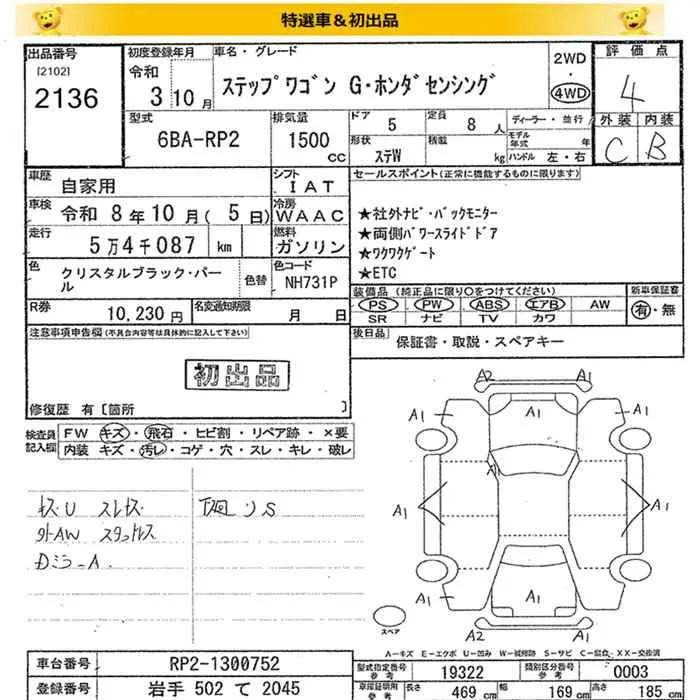 特選車＆初出品
出品番号
[2102]
2136
初度登録年月
令和
3年10月
車名・グレード
ステップワゴン G・ホンダセンシング
2WD
・
4WD
評価点
4
外装 内装
C B
型式
6BA-RP2
排気量
1500
cc
ドア 5
定員 8人
形状 ステW
積載 kg
ディーラー・並行
モデル年式 年
ハンドル 左・右
車歴 自家用
シフト IAT
車検 令和 8年10月(5日)
冷房 WAAC
走行 5万4千087 km
燃料 ガソリン
色 クリスタルブラック・パール
色替
色コード NH731P
R券 10,230円
名変通知期限 月 日
セールスポイント(正常に機能するものに限ります)
★社外ナビ・バックモニター
★両側パワースライドドア
★ワクワクゲート
★ETC
装備品 (純正品に限り○をつけてください)
新車保証書
PS PW ABS エアB AW
SR ナビ TV カワ
有・無
後日品 保証書・取説・スペアキー
注意事項申告欄(不具合内容等は具体的に記入して下さい)
初出品
修復歴 有 [箇所 ]
検査員記入欄
FW キズ・飛石・ヒビ割・リペア跡・×要
内装 キズ・汚レ・コゲ・穴・スレ・キレ・破レ
外AW スタッドレス
DミラーA
A2 A1
A1 A1 A1
A1
A1 A1 A1
A1 A1 A1
A2 A1
スペア
A－キズ E－エクボ U－凹み W－補修跡 S－サビ C－腐食 XX－交換済
車台番号 RP2-1300752
登録番号 岩手 502 て 2045
型式指定番号参考 19322
類別区分番号参考 0003
車庫証明用参考 長さ 469 cm 幅 169 cm 高さ 185 cm